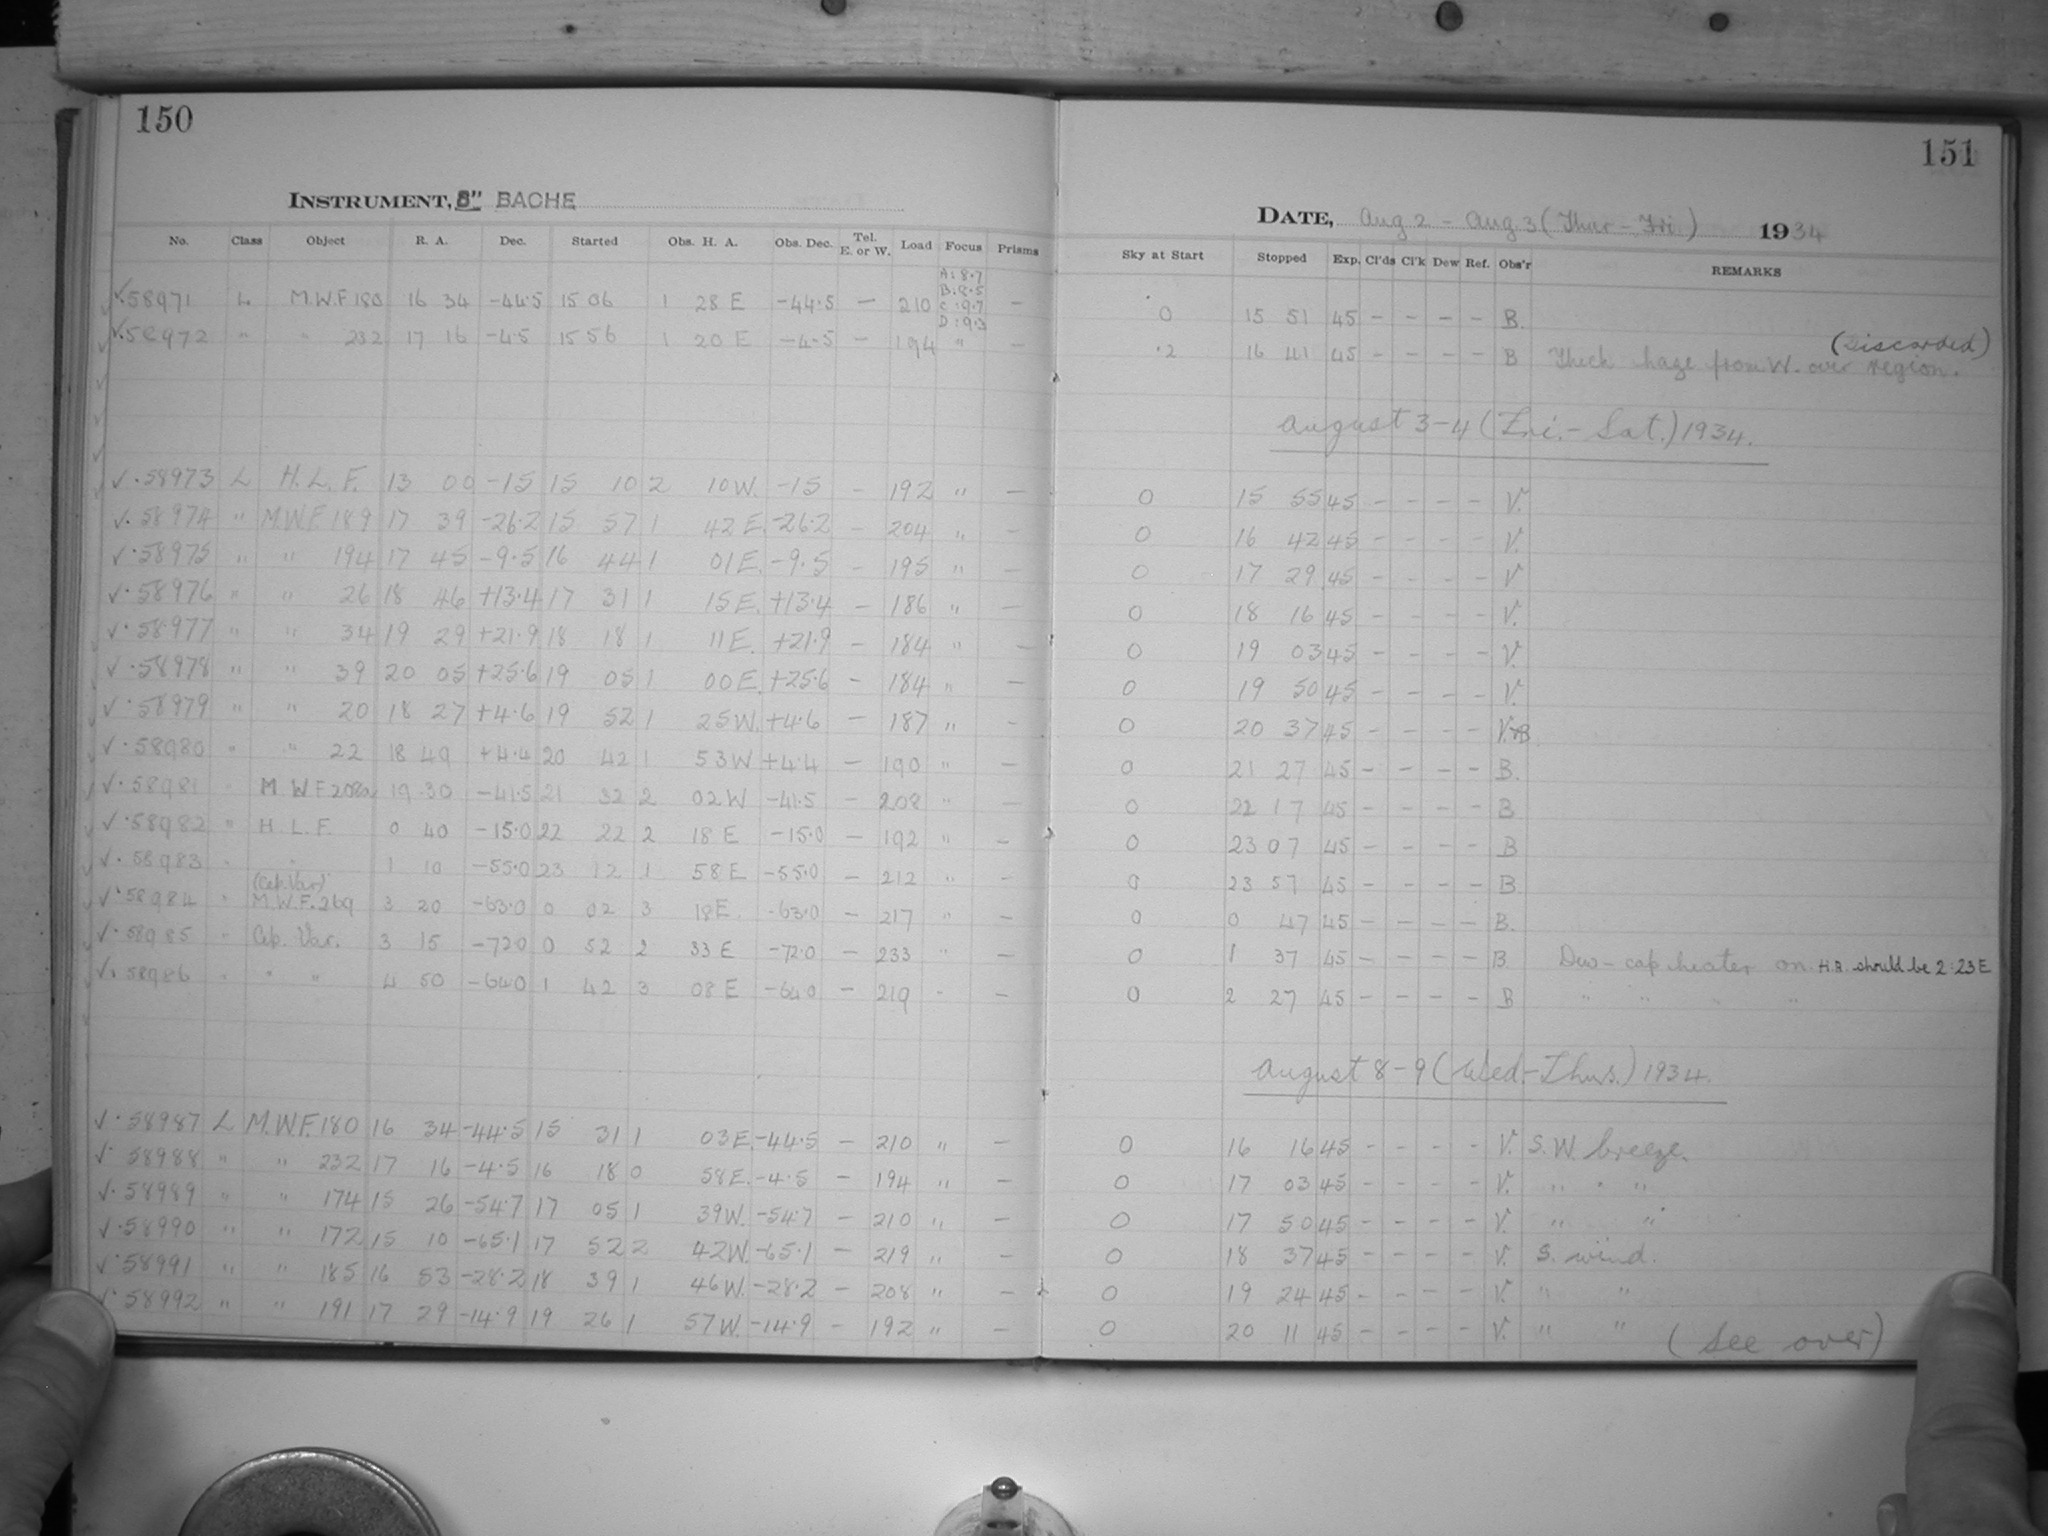 150
INSTRUMENT, 8" BACHE
No. Class Object R. A. Dec. Started Obs. H. A. Obs. Dec. Tel. E. or W. Load Focus Prisms
✓.58971 L M.W.F 180 16 34 -44.5 15 06 1 28 E -44.5 — 210 A:8.7 B:8.5 C:9.7 D:9.3 —
✓.58972 " " 232 17 16 -4.5 15 56 1 20 E -4.5 — 194 " —
✓.58973 L H.L.F. 13 00 -15 15 10 2 10W. -15 - 192 " —
✓.58974 " M.W.F. 189 17 39 -26.2 15 57 1 42 E. -26.2 - 204 " —
✓.58975 " " 194 17 45 -9.5 16 44 1 01 E. -9.5 - 195 " —
✓.58976 " " 26 18 46 +13.4 17 31 1 15 E. +13.4 - 186 " —
✓.58977 " " 34 19 29 +21.9 18 18 1 11 E. +21.9 - 184 " —
✓.58978 " " 39 20 05 +25.6 19 05 1 00 E. +25.6 - 184 " —
✓.58979 " " 20 18 27 +4.6 19 52 1 25 W. +4.6 — 187 " —
✓.58980 " " 22 18 49 +4.4 20 42 1 53 W +4.4 — 190 " —
✓.58981 " M.W.F 208a 19 30 -41.5 21 32 2 02 W -41.5 — 208 " —
✓.58982 " H.L.F. 0 40 -15.0 22 22 2 18 E -15.0 — 192 " —
✓.58983 " " 1 10 -55.0 23 12 1 58 E -55.0 — 212 " —
(Cep. Var)
✓.58984 " M.W.F. 269 3 20 -63.0 0 02 3 18 E. -63.0 — 217 " —
✓.58985 " Cep. Var. 3 15 -72.0 0 52 2 33 E -72.0 — 233 " —
✓.58986 " " " 4 50 -64.0 1 42 3 08 E -64.0 — 219 - —
✓.58987 L M.W.F. 180 16 34 -44.5 15 31 1 03 E. -44.5 - 210 " —
✓.58988 " " 232 17 16 -4.5 16 18 0 58 E. -4.5 - 194 " —
✓.58989 " " 174 15 26 -54.7 17 05 1 39 W. -54.7 - 210 " —
✓.58990 " " 172 15 10 -65.1 17 52 2 42 W. -65.1 - 219 " —
✓.58991 " " 185 16 53 -28.2 18 39 1 46 W. -28.2 - 208 " —
✓.58992 " " 191 17 29 -14.9 19 26 1 57 W. -14.9 - 192 " —
151
DATE, Aug 2 - Aug 3 (Thur - Fri) 1934
Sky at Start Stopped Exp. Cl'ds Cl'k Dew Ref. Obs'r REMARKS
0 15 51 45 - - - - B.
(Discarded)
.2 16 41 45 - - - - B Thick haze from W. over region.
August 3-4 (Fri.-Sat.) 1934.
0 15 55 45 - - - - V.
0 16 42 45 - - - - V.
0 17 29 45 - - - - V
0 18 16 45 - - - - V.
0 19 03 45 - - - - V.
0 19 50 45 - - - - V.
0 20 37 45 - - - - V.&B
0 21 27 45 - - - - B.
0 22 17 45 - - - - B
0 23 07 45 - - - - B
0 23 57 45 - - - - B
0 0 47 45 - - - - B.
0 1 37 45 - - - - B Dew-cap heater on. H.A. should be 2:23 E
0 2 27 45 - - - - B " " " "
August 8-9 (Wed.-Thurs.) 1934.
0 16 16 45 - - - - V. S.W. breeze.
0 17 03 45 - - - - V. " " "
0 17 50 45 - - - - V. " "
0 18 37 45 - - - - V. S. wind.
0 19 24 45 - - - - V. " "
0 20 11 45 - - - - V. " "
(See over)